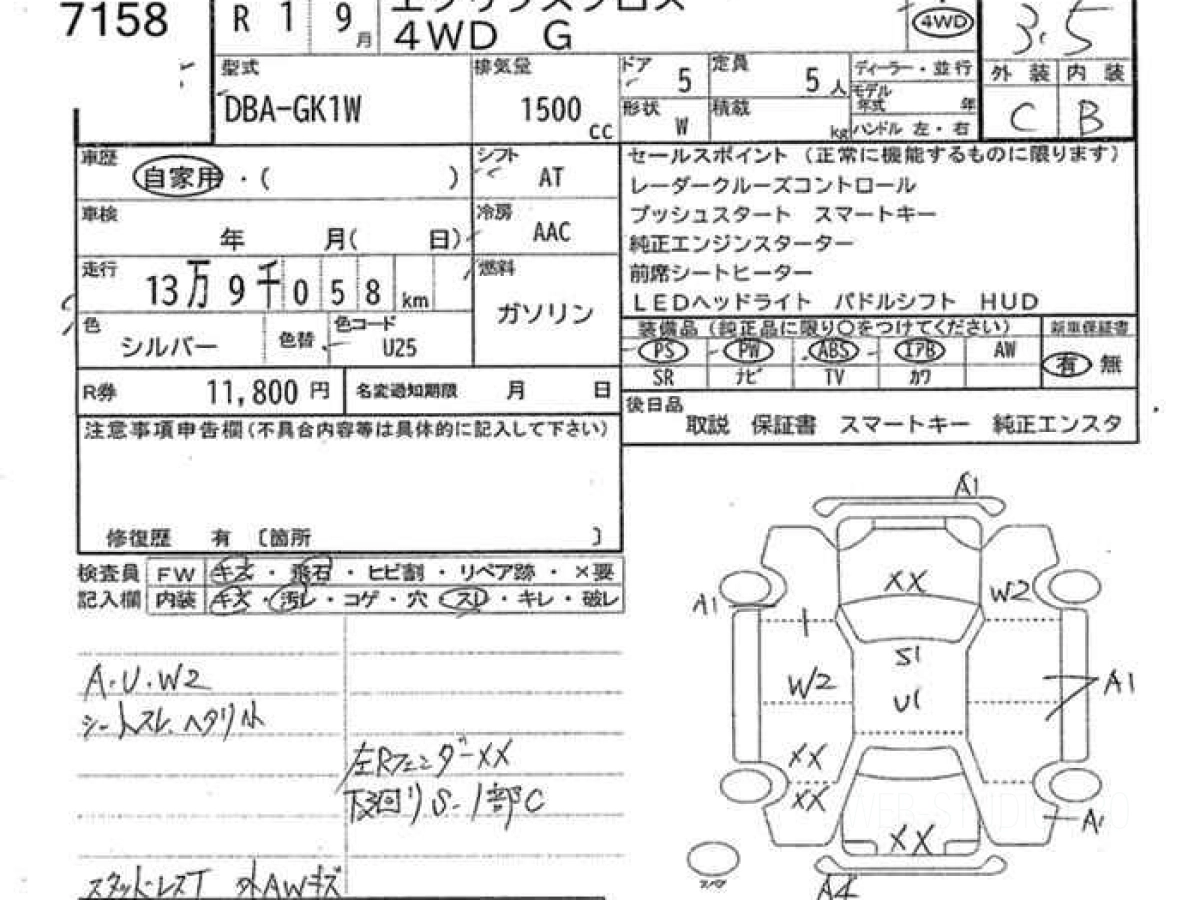 7158
R 1 9月
エクリプスクロス
4WD G
4WD
3.5
型式
DBA-GK1W
排気量
1500 cc
ドア 5
定員 5人
形状 W
積載 kg
ディーラー・並行
モデル年式 年
ハンドル 左・右
外装 内装
C B
車歴
自家用・( )
シフト AT
車検
年 月( 日)
冷房 AAC
走行
13万9千058km
燃料
ガソリン
色
シルバー
色替
色コード
U25
セールスポイント (正常に機能するものに限ります)
レーダークルーズコントロール
プッシュスタート スマートキー
純正エンジンスターター
前席シートヒーター
LEDヘッドライト パドルシフト HUD
装備品(純正品に限り○をつけてください) 新車保証書
PS PW ABS エアB AW 有 無
SR ナビ TV カワ
R券 11,800円 名変通知期限 月 日
後日品
取説 保証書 スマートキー 純正エンスタ
注意事項申告欄(不具合内容等は具体的に記入して下さい)
修復歴 有 〔箇所 〕
検査員 FW キズ・飛石・ヒビ割・リペア跡・×要
記入欄 内装 キズ・汚レ・コゲ・穴・スレ・キレ・破レ
A・U・W2
シートスレ、ヘタリ小
左RフェンダーXX
下廻りS・1部C
スタッドレスT 外AWキズ
A1
XX
W2
A1
S1
W2
U1
A1
XX
XX
A1
XX
A4
スペア